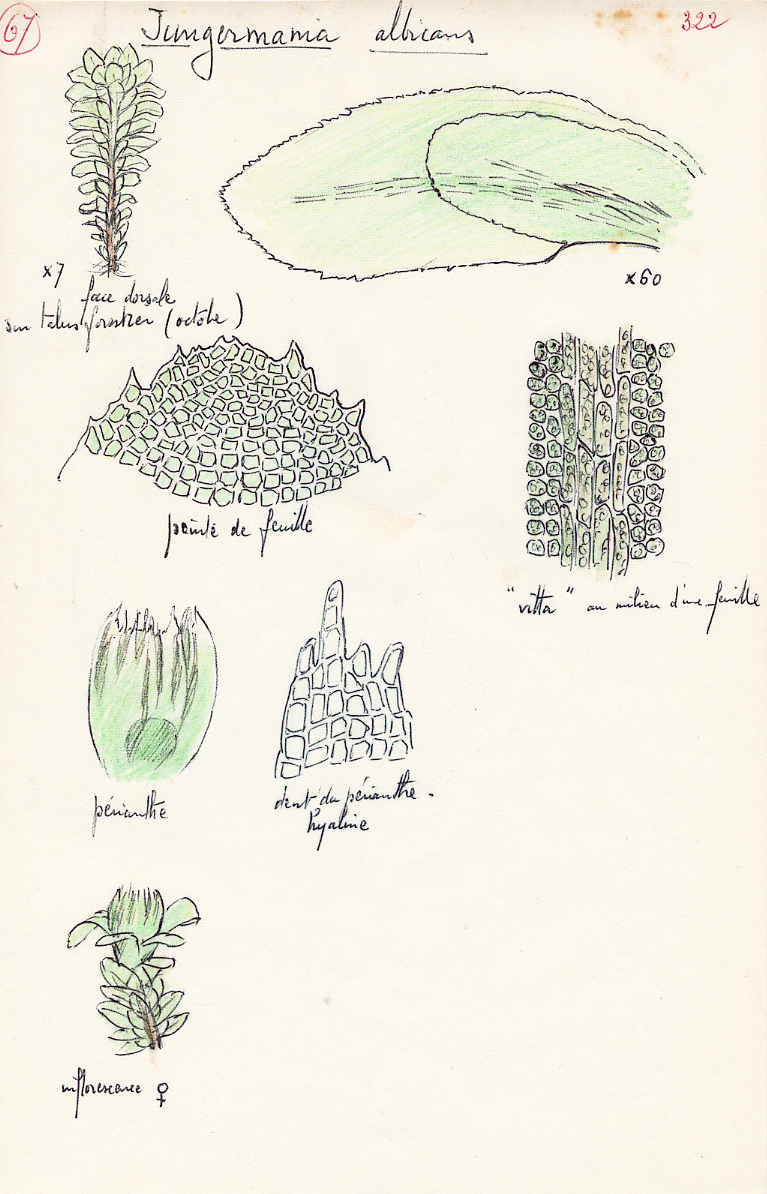 67
Jungermania albicans
322
x7
face dorsale
sur talus forestier (octobre)
x60
pointe de feuille
"vitta" au milieu d'une feuille
périanthe
dent du périanthe.
hyaline
inflorescence ♀